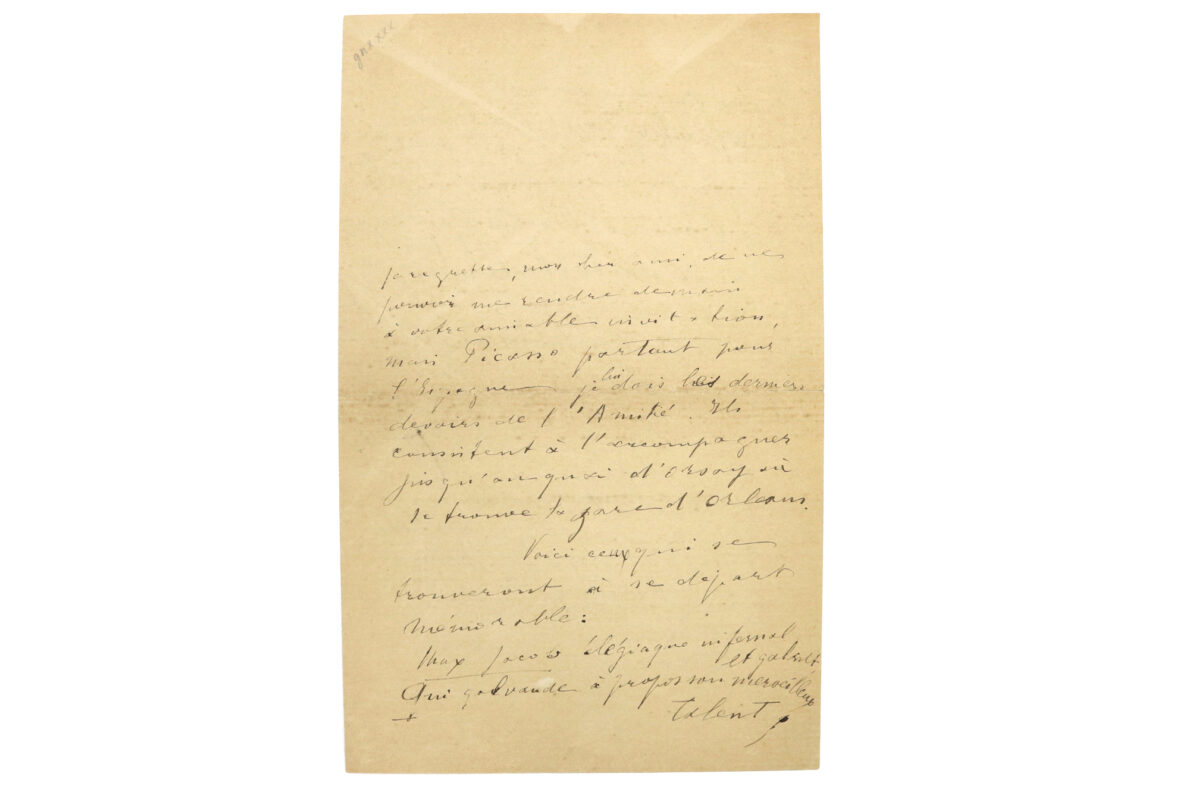 je regrette, mon cher ami, de ne
pouvoir me rendre demain
à votre aimable invitation,
mais Picasso partant pour
l'Espagne je lui dois les derniers
devoirs de l'Amitié. Ils
consistent à l'accompagner
jusqu'au quai d'Orsay où
se trouve la gare d'Orléans.
Voici ceux qui se
trouveront à se départ
mémorable:
Max Jacob élégiaque infernal
et
Qui galvaude à propos son merveilleux
talent